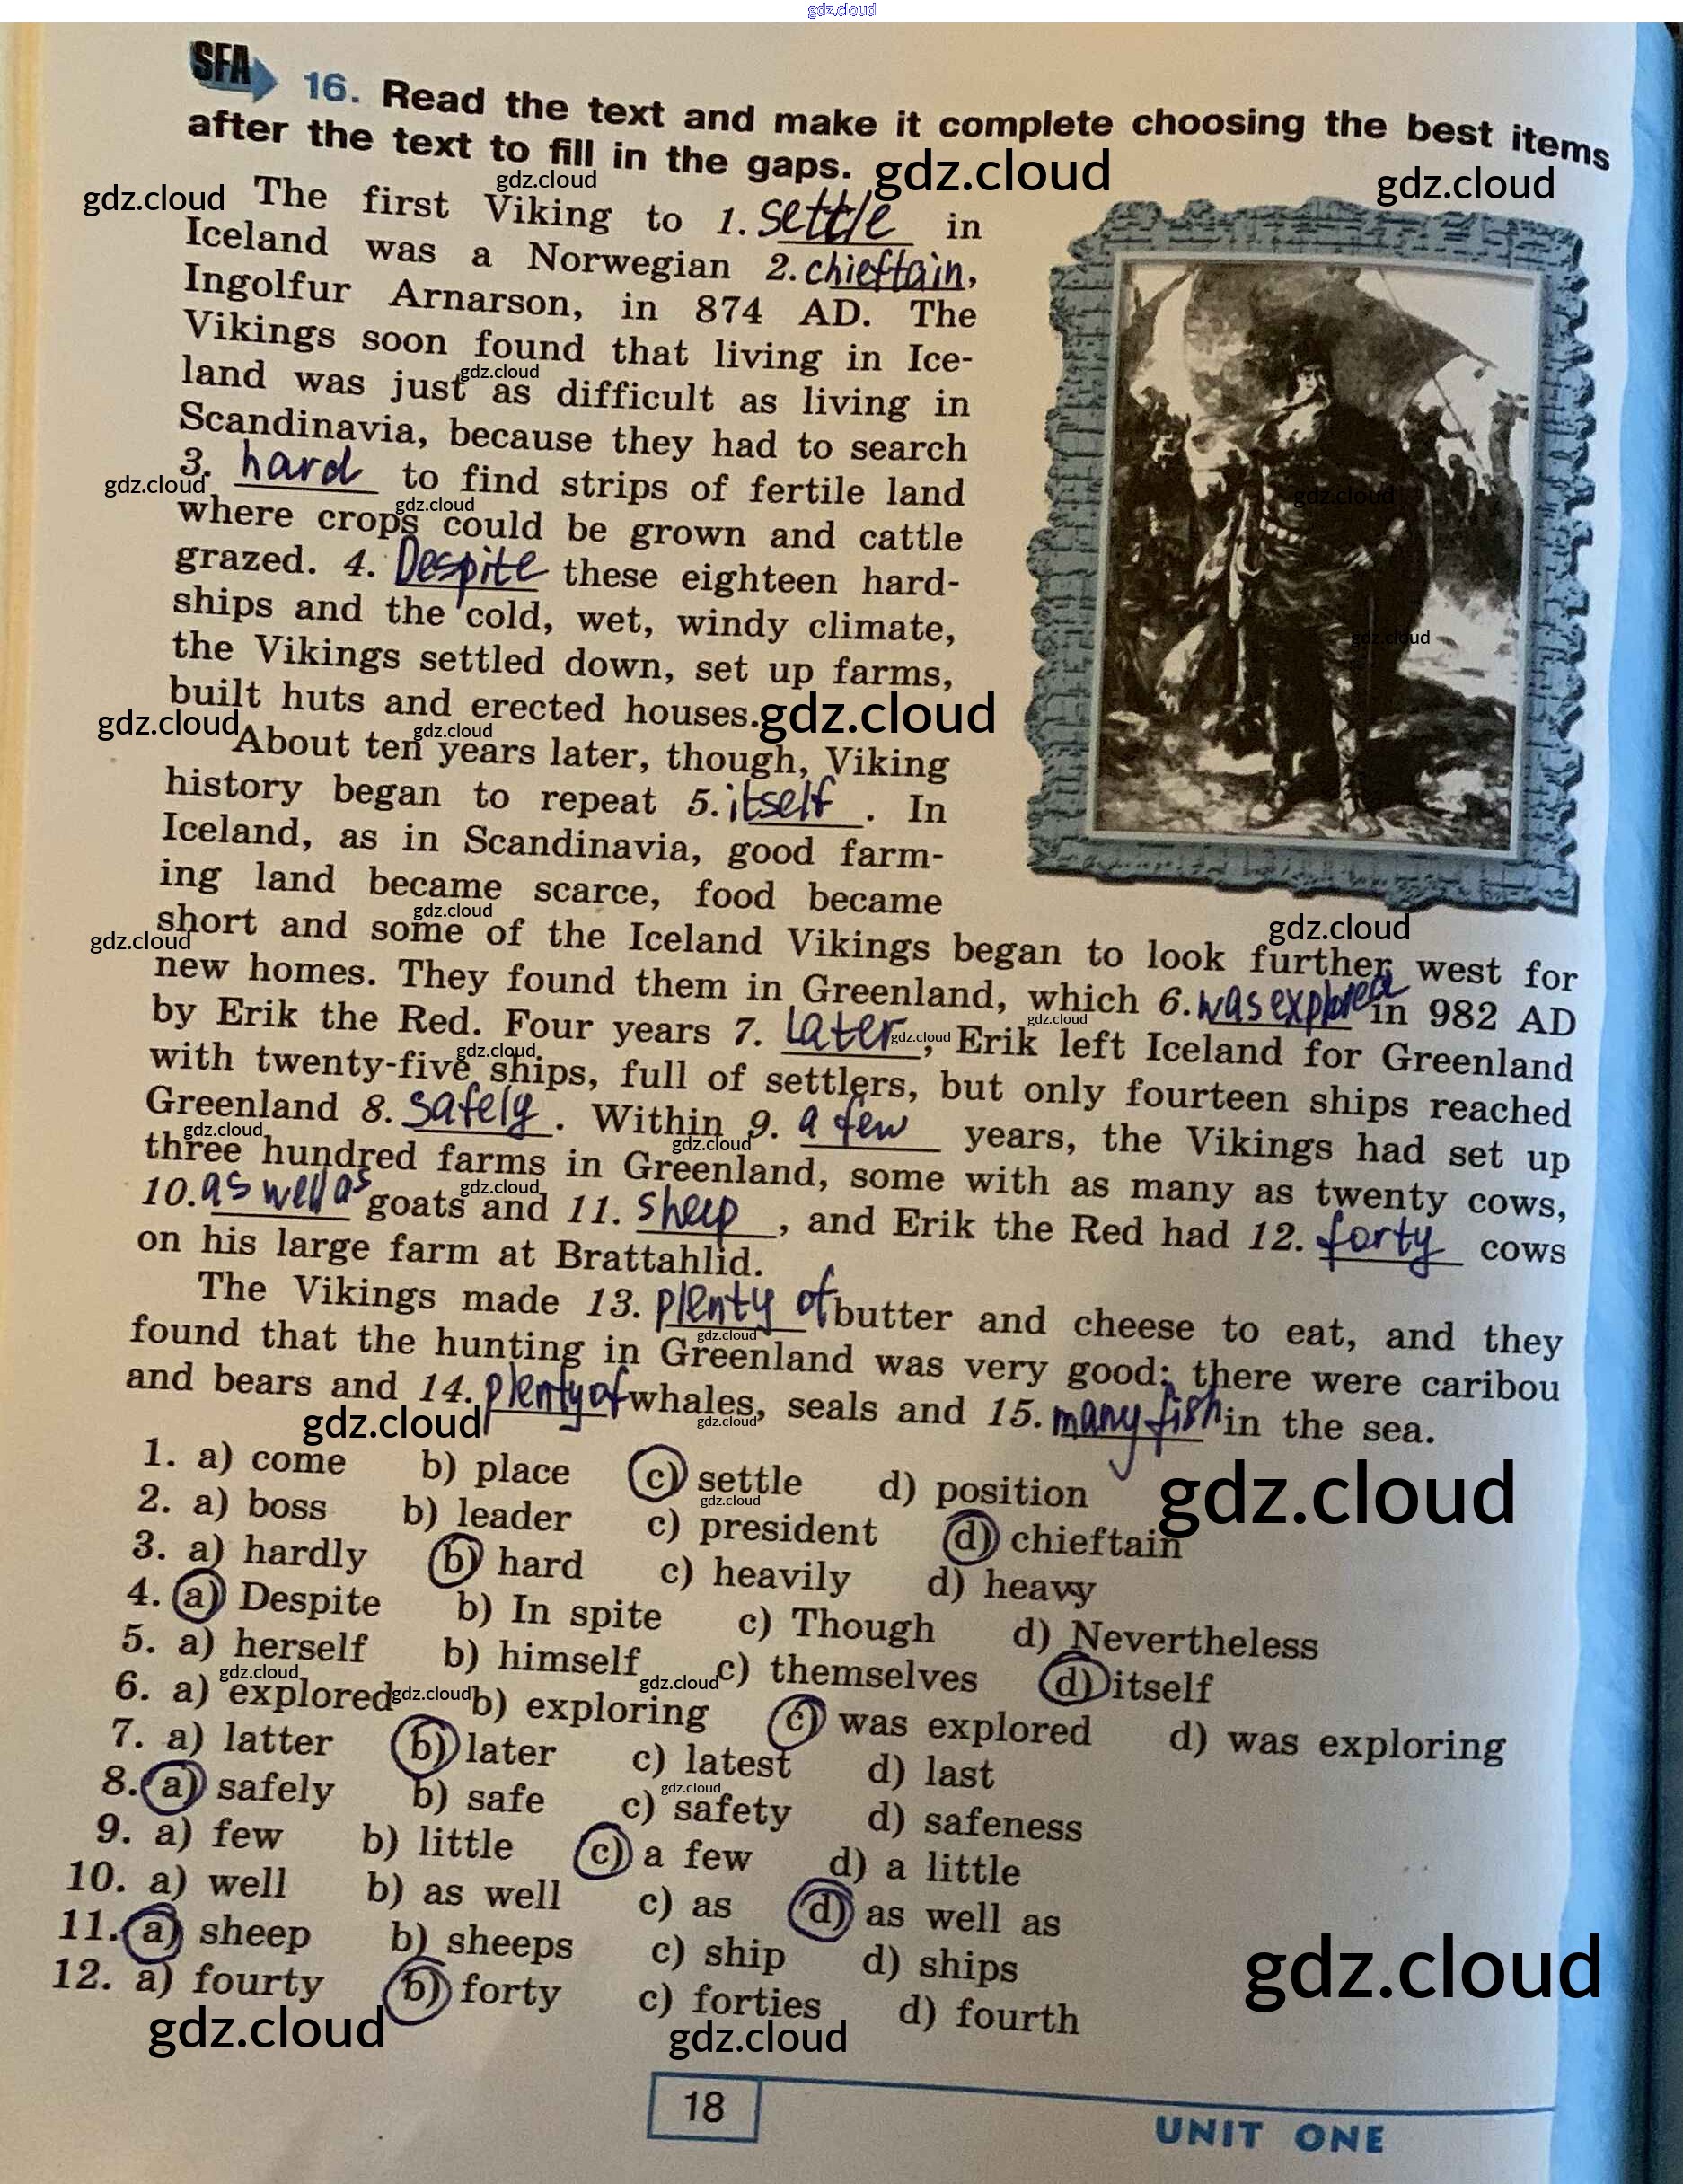 gdz.cloud
SFA 16. Read the text and make it complete choosing the best items
after the text to fill in the gaps.
gdz.cloud
gdz.cloud
gdz.cloud
gdz.cloud
The first Viking to 1. settle in
Iceland was a Norwegian 2. chieftain,
Ingolfur Arnarson, in 874 AD. The
Vikings soon found that living in Ice-
land was just as difficult as living in
gdz.cloud
Scandinavia, because they had to search
3. hard to find strips of fertile land
gdz.cloud
gdz.cloud
gdz.cloud
where crops could be grown and cattle
grazed. 4. Despite these eighteen hard-
ships and the cold, wet, windy climate,
gdz.cloud
the Vikings settled down, set up farms,
built huts and erected houses.
gdz.cloud
gdz.cloud
gdz.cloud
About ten years later, though, Viking
history began to repeat 5. itself. In
Iceland, as in Scandinavia, good farm-
ing land became scarce, food became
gdz.cloud
gdz.cloud
gdz.cloud
short and some of the Iceland Vikings began to look further west for
new homes. They found them in Greenland, which 6. was explored in 982 AD
by Erik the Red. Four years 7. later, Erik left Iceland for Greenland
gdz.cloud
gdz.cloud
gdz.cloud
with twenty-five ships, full of settlers, but only fourteen ships reached
Greenland 8. safely. Within 9. a few years, the Vikings had set up
gdz.cloud
gdz.cloud
three hundred farms in Greenland, some with as many as twenty cows,
gdz.cloud
10. as well as goats and 11. sheep, and Erik the Red had 12. forty cows
on his large farm at Brattahlid.
The Vikings made 13. plenty of butter and cheese to eat, and they
gdz.cloud
found that the hunting in Greenland was very good: there were caribou
and bears and 14. plenty of whales, seals and 15. many fish in the sea.
gdz.cloud
gdz.cloud
1. a) come b) place c) settle d) position
gdz.cloud
gdz.cloud
2. a) boss b) leader c) president d) chieftain
3. a) hardly b) hard c) heavily d) heavy
4. a) Despite b) In spite c) Though d) Nevertheless
5. a) herself b) himself c) themselves d) itself
gdz.cloud
gdz.cloud
gdz.cloud
6. a) explored b) exploring c) was explored d) was exploring
7. a) latter b) later c) latest d) last
gdz.cloud
8. a) safely b) safe c) safety d) safeness
9. a) few b) little c) a few d) a little
10. a) well b) as well c) as d) as well as
11. a) sheep b) sheeps c) ship d) ships
gdz.cloud
12. a) fourty b) forty c) forties d) fourth
gdz.cloud
gdz.cloud
18
UNIT ONE